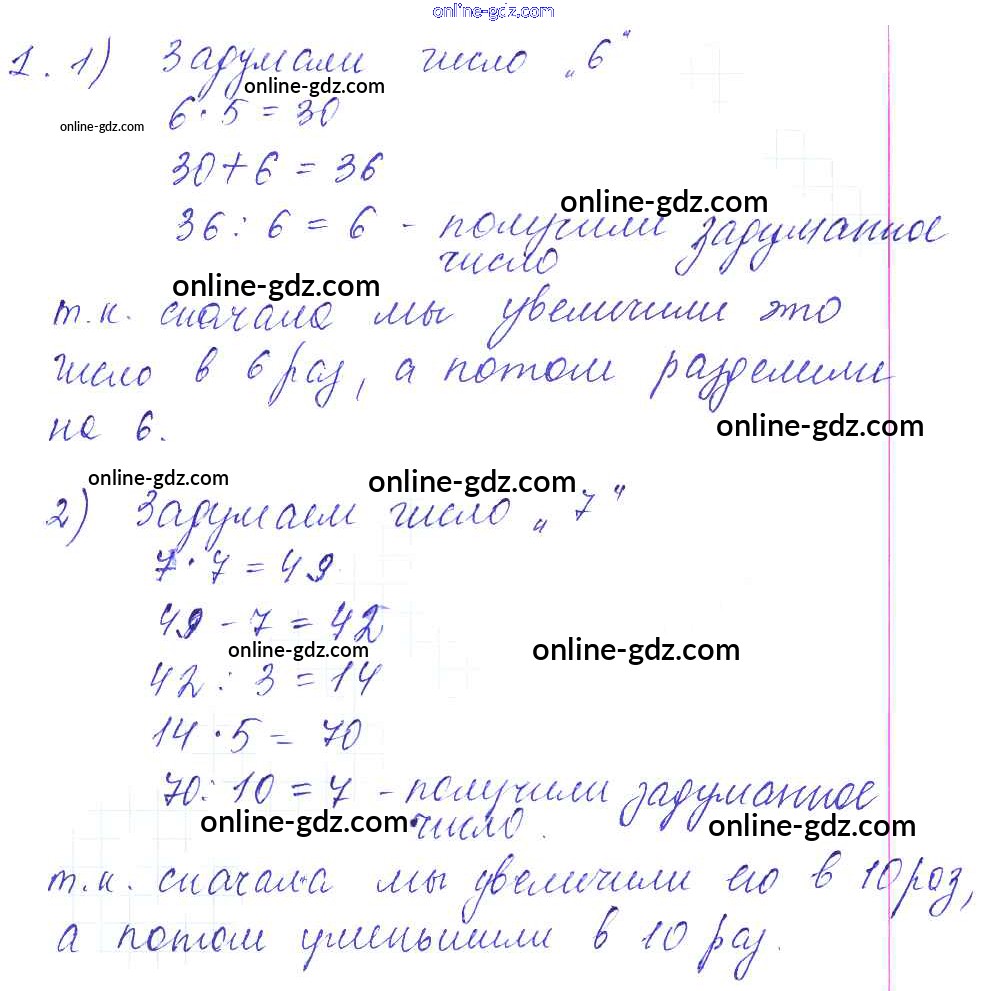 online-gdz.com
1. 1) Задумали число „6“
online-gdz.com
6 · 5 = 30
online-gdz.com
30 + 6 = 36
online-gdz.com
36 : 6 = 6 - получили задуманное
число
online-gdz.com
т.к. сначала мы увеличили это
число в 6 раз, а потом разделили
online-gdz.com
на 6.
online-gdz.com
online-gdz.com
2) Задумаем число „7“
7 · 7 = 49
49 - 7 = 42
online-gdz.com
online-gdz.com
42 : 3 = 14
14 · 5 = 70
70 : 10 = 7 - получили задуманное
online-gdz.com
число.
online-gdz.com
т.к. сначала мы увеличили его в 10 раз,
а потом уменьшили в 10 раз.